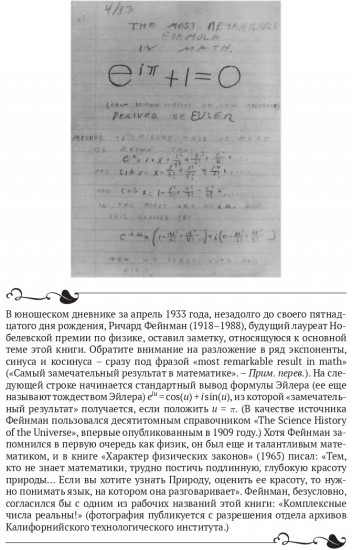 4/13
THE MOST REMARKABLE
FORMULA
IN MATH.
e^{iπ} + 1 = 0
DERIVED BY EULER
В юношеском дневнике за апрель 1933 года, незадолго до своего пятнад-
цатого дня рождения, Ричард Фейнман (1918–1988), будущий лауреат Но-
белевской премии по физике, оставил заметку, относящуюся к основной
теме этой книги. Обратите внимание на разложение в ряд экспоненты,
синуса и косинуса – сразу под фразой «most remarkable result in math»
(«Самый замечательный результат в математике». – Прим. перев.). На сле-
дующей строке начинается стандартный вывод формулы Эйлера (ее еще
называют тождеством Эйлера) e^{iu} = cos(u) + i sin(u), из которой «замечатель-
ный результат» получается, если положить u = π. (В качестве источника
Фейнман пользовался десятитомным справочником «The Science History
of the Universe», впервые опубликованным в 1909 году.) Хотя Фейнман за-
помнился в первую очередь как физик, он был еще и талантливым мате-
матиком, и в книге «Характер физических законов» (1965) писал: «Тем,
кто не знает математики, трудно постичь подлинную, глубокую красоту
природы… Если вы хотите узнать Природу, оценить ее красоту, то нуж-
но понимать язык, на котором она разговаривает». Фейнман, безусловно,
согласился бы с одним из рабочих названий этой книги: «Комплексные
числа реальны!» (фотография публикуется с разрешения отдела архивов
Калифорнийского технологического института.)